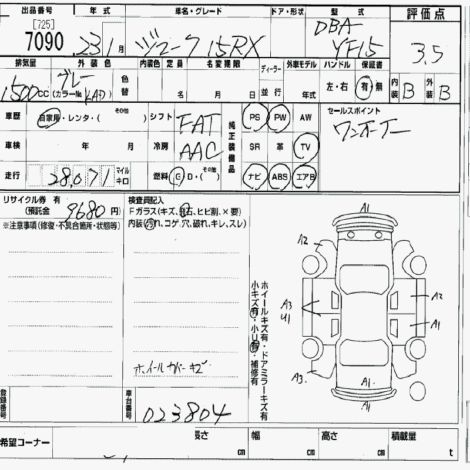 出品番号 年式 車名・グレード ドア・形状 型式 評価点
[725]
7090 23 1月 ジューク 15RX DBA YF15 3.5
排気量 外装色 色替 内装色 定員 名変期限 ディーラー 外車モデル ハンドル 保証書 内装 B 外装 B
1500cc グレー (カラー№ KAD) 並行 年 左・右 有・無
車歴 自家用・レンタ・(その他) シフト FAT 純正装備品 PS PW AW セールスポイント
車検 年 月 冷房 AAC SR 革 TV ワンオーナー
走行 28,071 マイル キロ 燃料 G D・(その他) ナビ ABS エアB
リサイクル券 有
(預託金 9680 円) 検査員記入
Fガラス(キズ、飛石、ヒビ割、×要)
※注意事項(修復・不具合箇所・状態等) 内装(汚れ、コゲ、穴、破れ、キレ、スレ)
ホイールキズ有・ドアミラーキズ有
小キズ有・小U有・補修有
A1
A2
A3 U1
A1
A2
A1
A3
A1
A1
ホイールカバーキズ
登録番号 車台番号 023804
希望コーナー 長さ cm 幅 cm 高さ cm 積載量 t